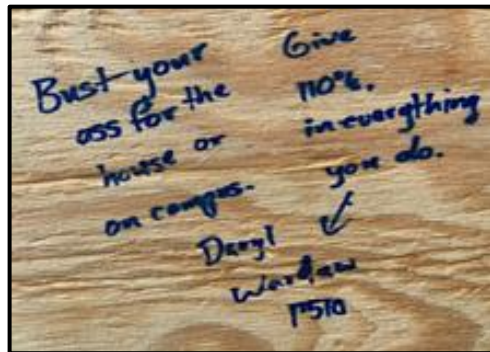 Bust your
ass for the
house or
on campus.
Give
110%.
in everything
you do.
Daryl
Wardlaw
1510